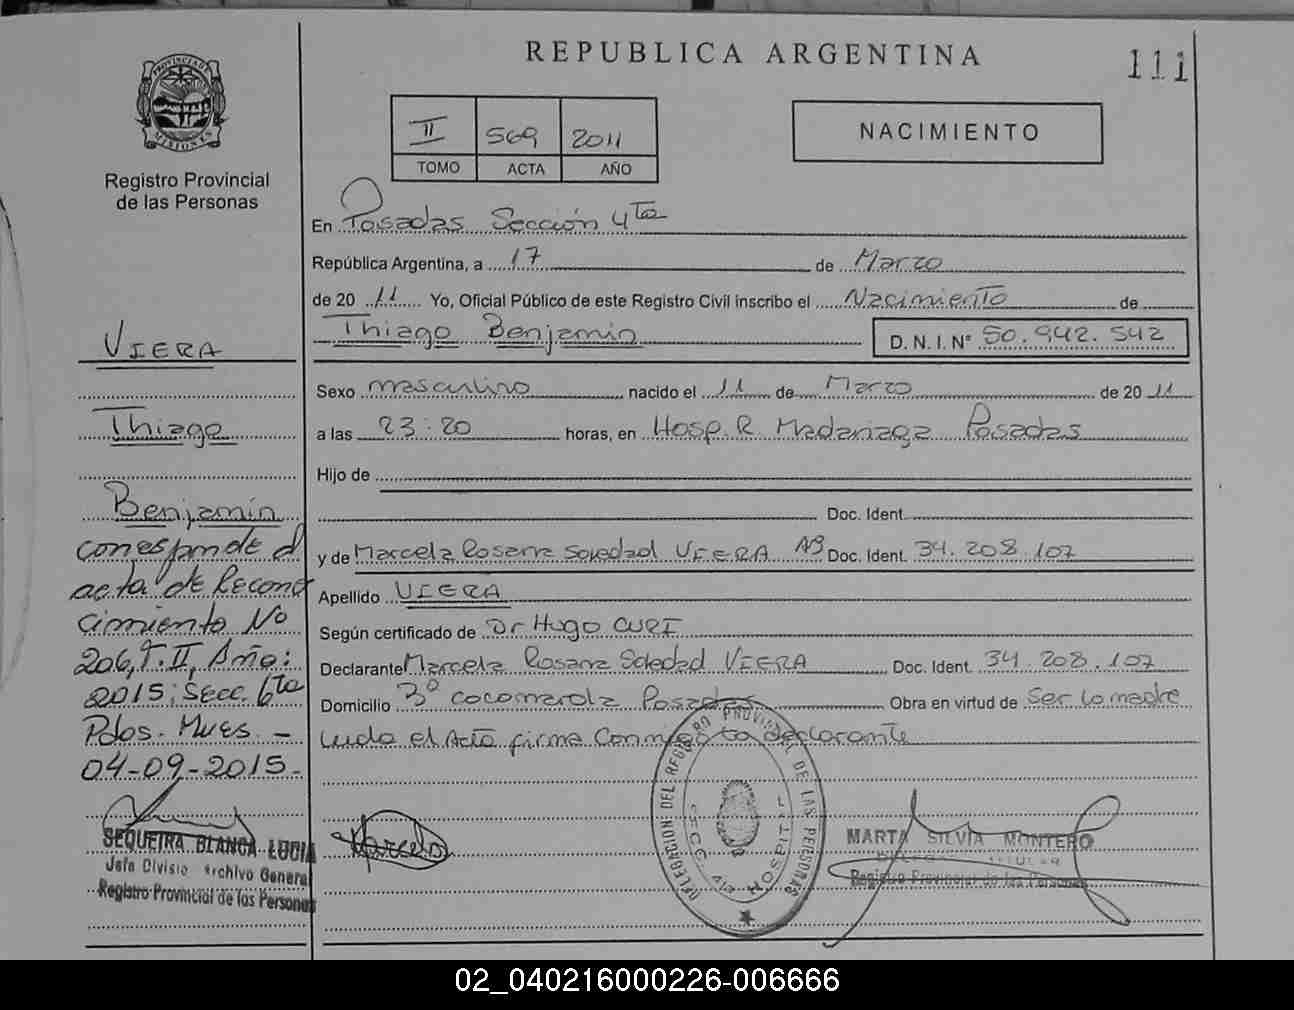 REPUBLICA ARGENTINA
111
PROVINCIA DE MISIONES
Registro Provincial
de las Personas
II 569 2011
TOMO ACTA AÑO
NACIMIENTO
En Posadas Sección 4ta
República Argentina, a 17 de Marzo
de 2011 Yo, Oficial Público de este Registro Civil inscribo el Nacimiento de
Thiago Benjamin D. N. I. N° 50.942.542
Sexo masculino nacido el 11 de Marzo de 2011
a las 23:20 horas, en Hosp. R. Madariaga Posadas
Hijo de
Doc. Ident.
y de Marcela Rosana Soledad VIERA Doc. Ident. 34.208.107
Apellido VIERA
Según certificado de Dr Hugo CURI
Declarante Marcela Rosana Soledad VIERA Doc. Ident. 34.208.107
Domicilio 3° cocomarola Posadas Obra en virtud de ser la madre
Leida el Acta firma Conmigo la declarante
VIERA
Thiago
Benjamín
corresponde al
acta de Recono
cimiento No
206, T. II, Año:
2015; Secc. 6ta
Pdas. Mnes. -
04-09-2015-
SEQUEIRA BLANCA LUCIA
Jefa Divisio Archivo General
Registro Provincial de las Personas
Marcela
DELEGACION DEL REGISTRO PROVINCIAL DE LAS PERSONAS
SECC. 4ta
MARTA SILVIA MONTERO
TITULAR
Registro Provincial de las Personas
02_040216000226-006666